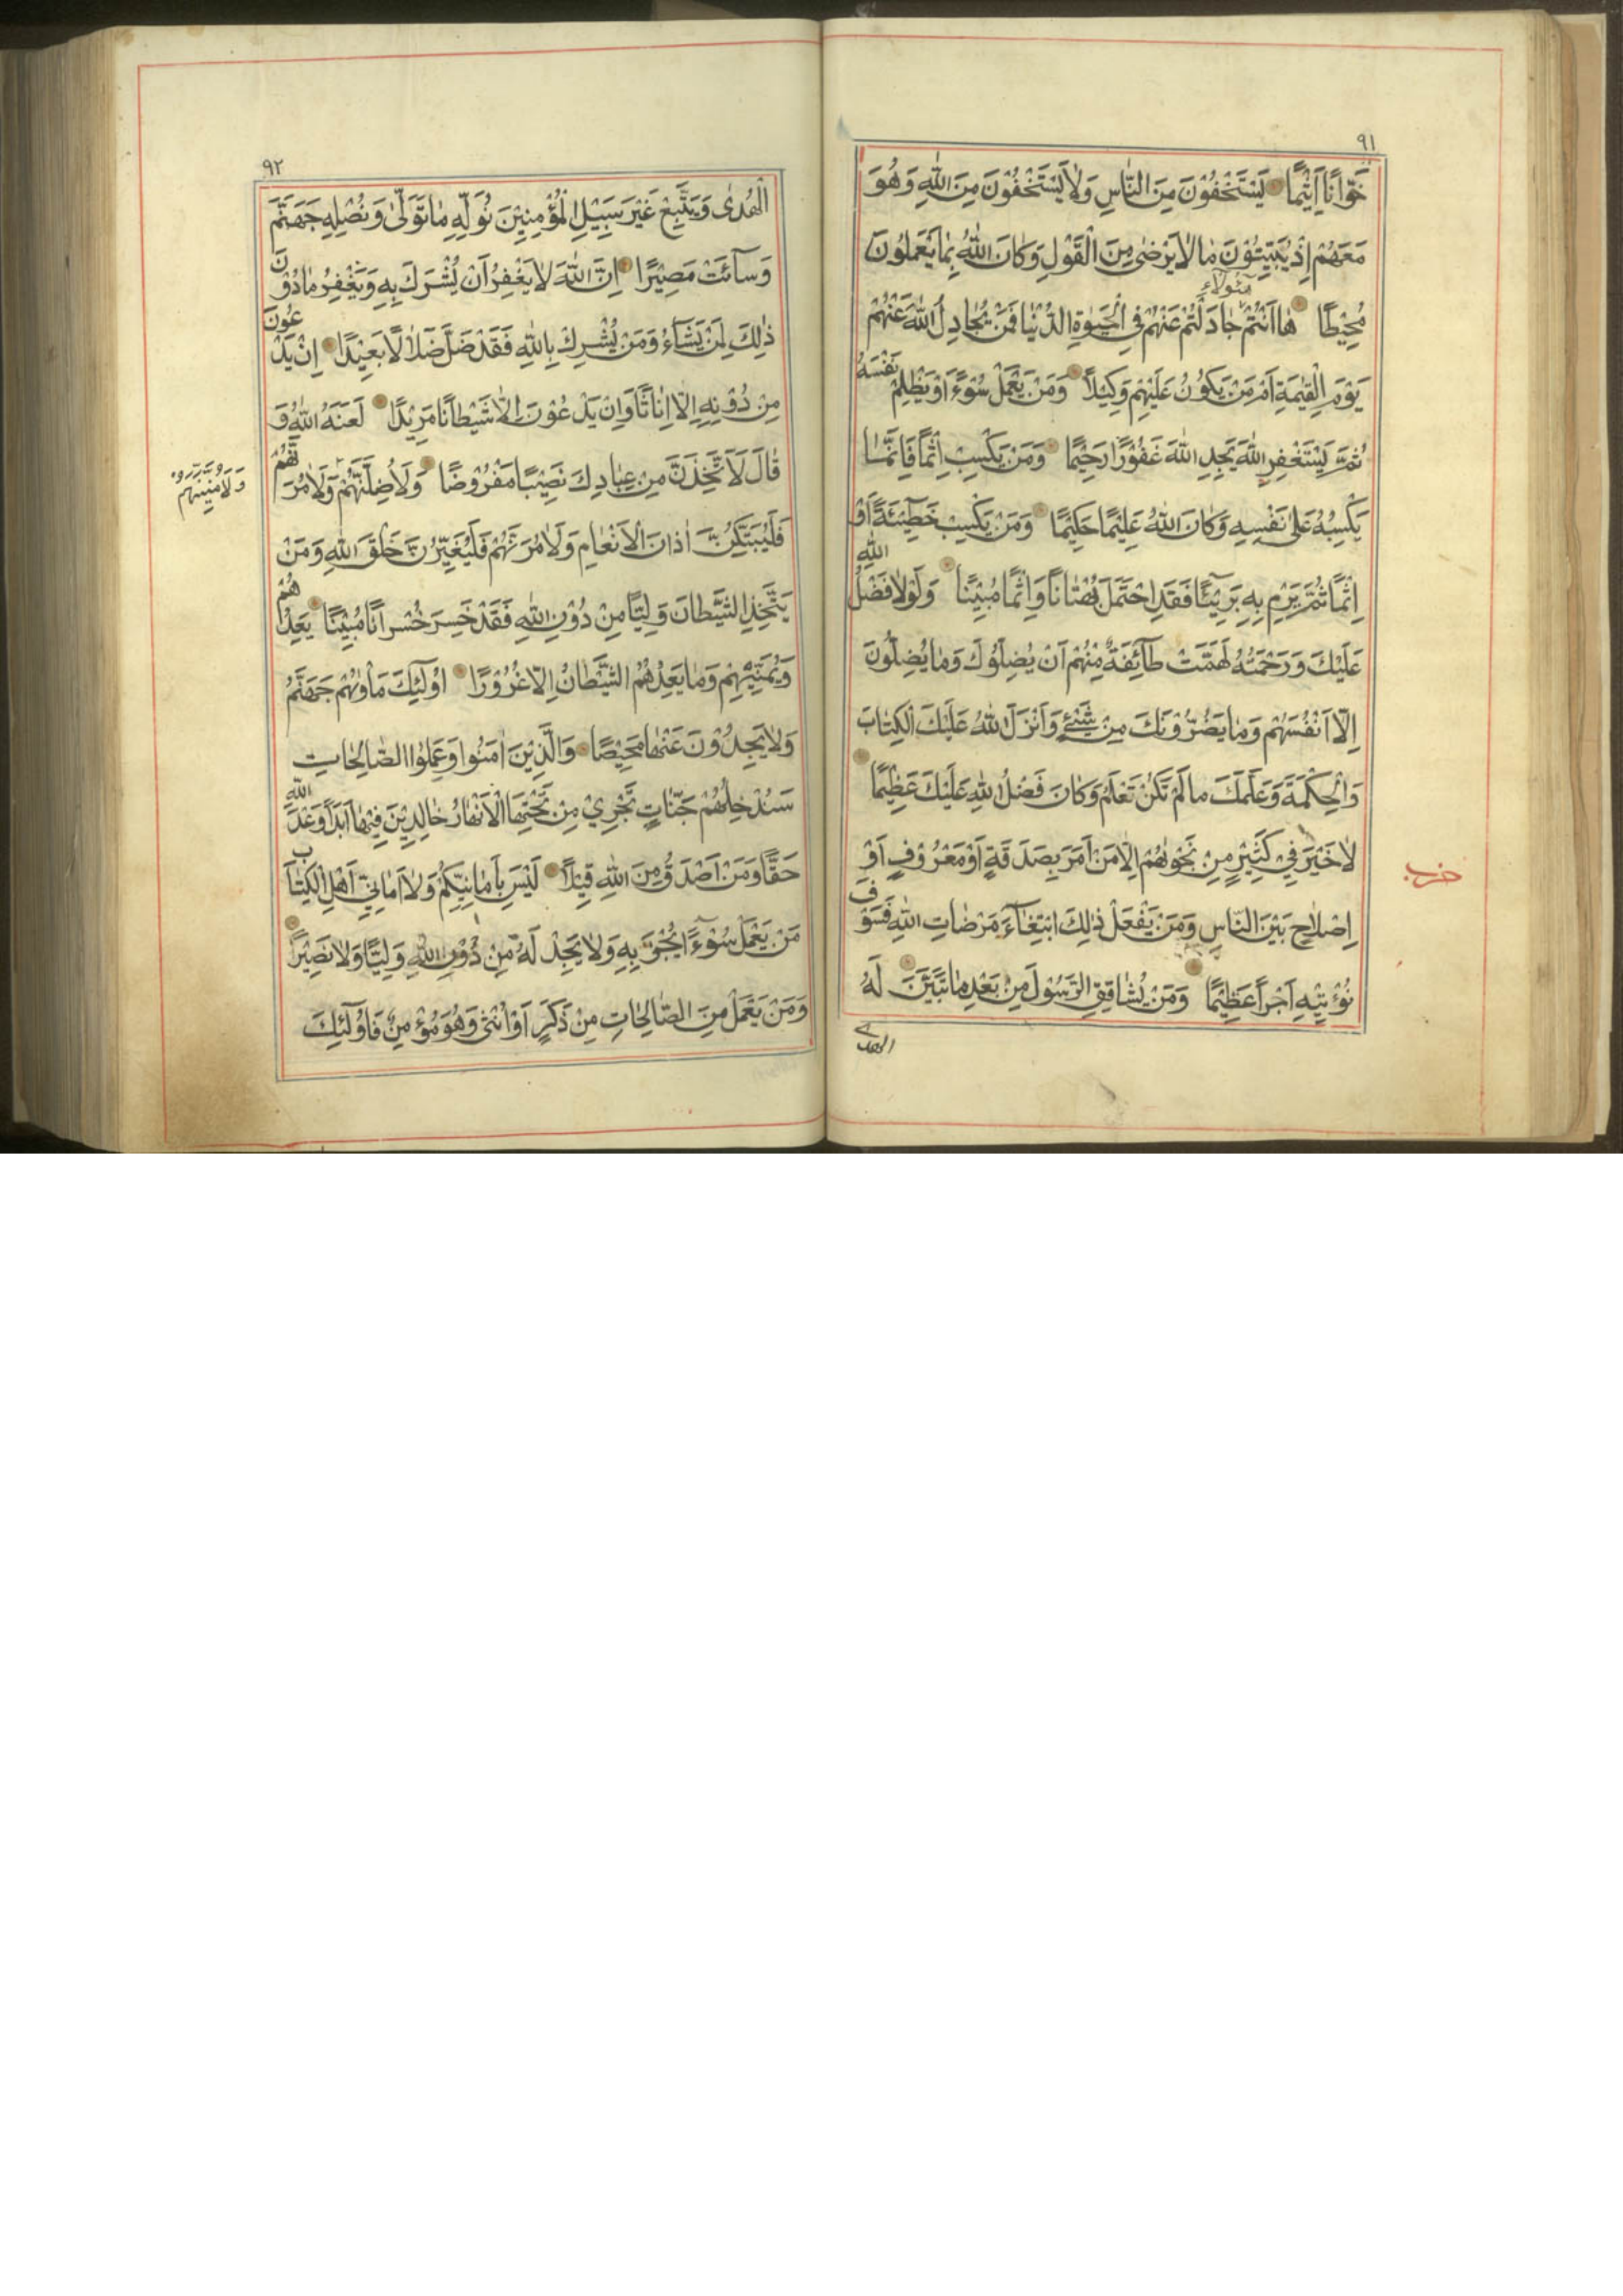 ٩١
خَوَّانًا اَثِيْمًا يَسْتَخْفُوْنَ مِنَ النَّاسِ وَلَا يَسْتَخْفُوْنَ مِنَ اللّٰهِ وَهُوَ
مَعَهُمْ اِذْ يُبَيِّتُوْنَ مَا لَا يَرْضٰى مِنَ الْقَوْلِ وَكَانَ اللّٰهُ بِمَا يَعْمَلُوْنَ
مُحِيْطًا هَا اَنْتُمْ هٰؤُلَاءِ جَادَلْتُمْ عَنْهُمْ فِي الْحَيٰوةِ الدُّنْيَا فَمَنْ يُجَادِلُ اللّٰهَ عَنْهُمْ
يَوْمَ الْقِيٰمَةِ اَمْ مَنْ يَكُوْنُ عَلَيْهِمْ وَكِيْلًا وَمَنْ يَعْمَلْ سُوْءًا اَوْ يَظْلِمْ نَفْسَهُ
ثُمَّ يَسْتَغْفِرِ اللّٰهَ يَجِدِ اللّٰهَ غَفُوْرًا رَحِيْمًا وَمَنْ يَكْسِبْ اِثْمًا فَاِنَّمَا
يَكْسِبُهُ عَلٰى نَفْسِهِ وَكَانَ اللّٰهُ عَلِيْمًا حَكِيْمًا وَمَنْ يَكْسِبْ خَطِيْئَةً اَوْ
اِثْمًا ثُمَّ يَرْمِ بِهِ بَرِيْئًا فَقَدِ احْتَمَلَ بُهْتَانًا وَاِثْمًا مُبِيْنًا وَلَوْلَا فَضْلُ اللّٰهِ
عَلَيْكَ وَرَحْمَتُهُ لَهَمَّتْ طَآئِفَةٌ مِنْهُمْ اَنْ يُضِلُّوْكَ وَمَا يُضِلُّوْنَ
اِلَّا اَنْفُسَهُمْ وَمَا يَضُرُّوْنَكَ مِنْ شَيْءٍ وَاَنْزَلَ اللّٰهُ عَلَيْكَ الْكِتَابَ
وَالْحِكْمَةَ وَعَلَّمَكَ مَا لَمْ تَكُنْ تَعْلَمُ وَكَانَ فَضْلُ اللّٰهِ عَلَيْكَ عَظِيْمًا
لَا خَيْرَ فِيْ كَثِيْرٍ مِنْ نَجْوٰيهُمْ اِلَّا مَنْ اَمَرَ بِصَدَقَةٍ اَوْ مَعْرُوْفٍ اَوْ
حزب
اِصْلَاحٍ بَيْنَ النَّاسِ وَمَنْ يَفْعَلْ ذٰلِكَ ابْتِغَآءَ مَرْضَاتِ اللّٰهِ فَسَوْفَ
نُؤْتِيْهِ اَجْرًا عَظِيْمًا وَمَنْ يُشَاقِقِ الرَّسُوْلَ مِنْ بَعْدِ مَا تَبَيَّنَ لَهُ
الهدى
٩٢
الْهُدٰى وَيَتَّبِعْ غَيْرَ سَبِيْلِ الْمُؤْمِنِيْنَ نُوَلِّهِ مَا تَوَلّٰى وَنُصْلِهِ جَهَنَّمَ
وَسَآئَتْ مَصِيْرًا اِنَّ اللّٰهَ لَا يَغْفِرُ اَنْ يُشْرَكَ بِهِ وَيَغْفِرُ مَا دُوْنَ
ذٰلِكَ لِمَنْ يَشَآءُ وَمَنْ يُشْرِكْ بِاللّٰهِ فَقَدْ ضَلَّ ضَلَالًا بَعِيْدًا اِنْ يَدْعُوْنَ
مِنْ دُوْنِهِ اِلَّا اِنَاثًا وَاِنْ يَدْعُوْنَ اِلَّا شَيْطَانًا مَرِيْدًا لَعَنَهُ اللّٰهُ وَ
قَالَ لَاَتَّخِذَنَّ مِنْ عِبَادِكَ نَصِيْبًا مَفْرُوْضًا وَلَاُضِلَّنَّهُمْ وَلَاٰمُرَنَّهُمْ
وَلَاُمَنِّيَنَّهُمْ
فَلَيُبَتِّكُنَّ اٰذَانَ الْاَنْعَامِ وَلَاٰمُرَنَّهُمْ فَلَيُغَيِّرُنَّ خَلْقَ اللّٰهِ وَمَنْ
يَتَّخِذِ الشَّيْطَانَ وَلِيًّا مِنْ دُوْنِ اللّٰهِ فَقَدْ خَسِرَ خُسْرَانًا مُبِيْنًا يَعِدُهُمْ
وَيُمَنِّيْهِمْ وَمَا يَعِدُهُمُ الشَّيْطَانُ اِلَّا غُرُوْرًا اُوْلٰٓئِكَ مَأْوٰيهُمْ جَهَنَّمُ
وَلَا يَجِدُوْنَ عَنْهَا مَحِيْصًا وَالَّذِيْنَ اٰمَنُوْا وَعَمِلُوا الصَّالِحَاتِ
سَنُدْخِلُهُمْ جَنَّاتٍ تَجْرِيْ مِنْ تَحْتِهَا الْاَنْهَارُ خَالِدِيْنَ فِيْهَا اَبَدًا وَعْدَ اللّٰهِ
حَقًّا وَمَنْ اَصْدَقُ مِنَ اللّٰهِ قِيْلًا لَيْسَ بِاَمَانِيِّكُمْ وَلَا اَمَانِيِّ اَهْلِ الْكِتَابِ
مَنْ يَعْمَلْ سُوْٓءًا يُجْزَ بِهِ وَلَا يَجِدْ لَهُ مِنْ دُوْنِ اللّٰهِ وَلِيًّا وَلَا نَصِيْرًا
وَمَنْ يَعْمَلْ مِنَ الصَّالِحَاتِ مِنْ ذَكَرٍ اَوْ اُنْثٰى وَهُوَ مُؤْمِنٌ فَاُوْلٰٓئِكَ